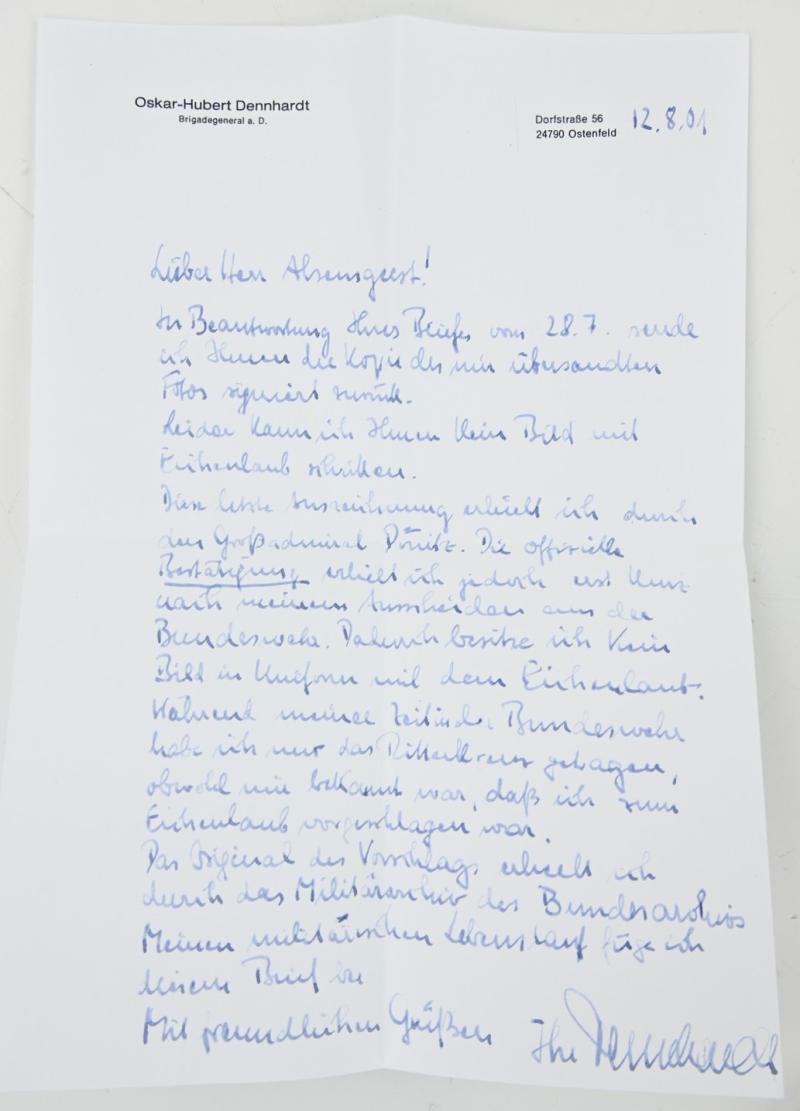 Oskar-Hubert Dennhardt
Brigadegeneral a. D.
Dorfstraße 56
24790 Ostenfeld
12.8.01
Lieber Herr
In Beantwortung Ihres Briefes vom 28.7. sende
ich Ihnen die Kopie des mir übersandten
Fotos signiert zurück.
Leider kann ich Ihnen kein Bild mit
Eichenlaub schicken.
Diese letzte Auszeichnung erhielt ich durch
den Großadmiral Dönitz. Die offizielle
Bestätigung erhielt ich jedoch erst kurz
nach meinem Ausscheiden aus der
Bundeswehr. Dadurch besitze ich kein
Bild in Uniform mit dem Eichenlaub.
Während meiner Zeit in der Bundeswehr
habe ich nur das Ritterkreuz getragen,
obwohl mir bekannt war, daß ich zum
Eichenlaub vorgeschlagen war.
Das Original des Vorschlags erhielt ich
durch das Militärarchiv des Bundesarchivs
Meinen militärischen Lebenslauf füge ich
diesem Brief bei
Mit freundlichen Grüßen
Ihr Dennhardt